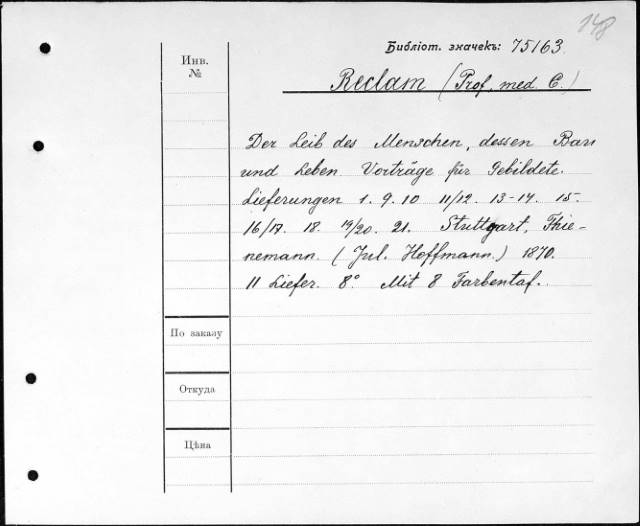 148
Библіот. значекъ: 75163.
Инв.
№
Reclam (Prof. med. C.)
Der Leib des Menschen, dessen Bau
und Leben. Vorträge für Gebildete.
Lieferungen 1. 9. 10 11/12. 13-14. 15.
16/17. 18. 19/20. 21. Stuttgart, Thie-
nemann. (Jul. Hoffmann.) 1870.
11 Liefer. 8° Mit 8 Farbentaf.
По заказу
Откуда
Цѣна